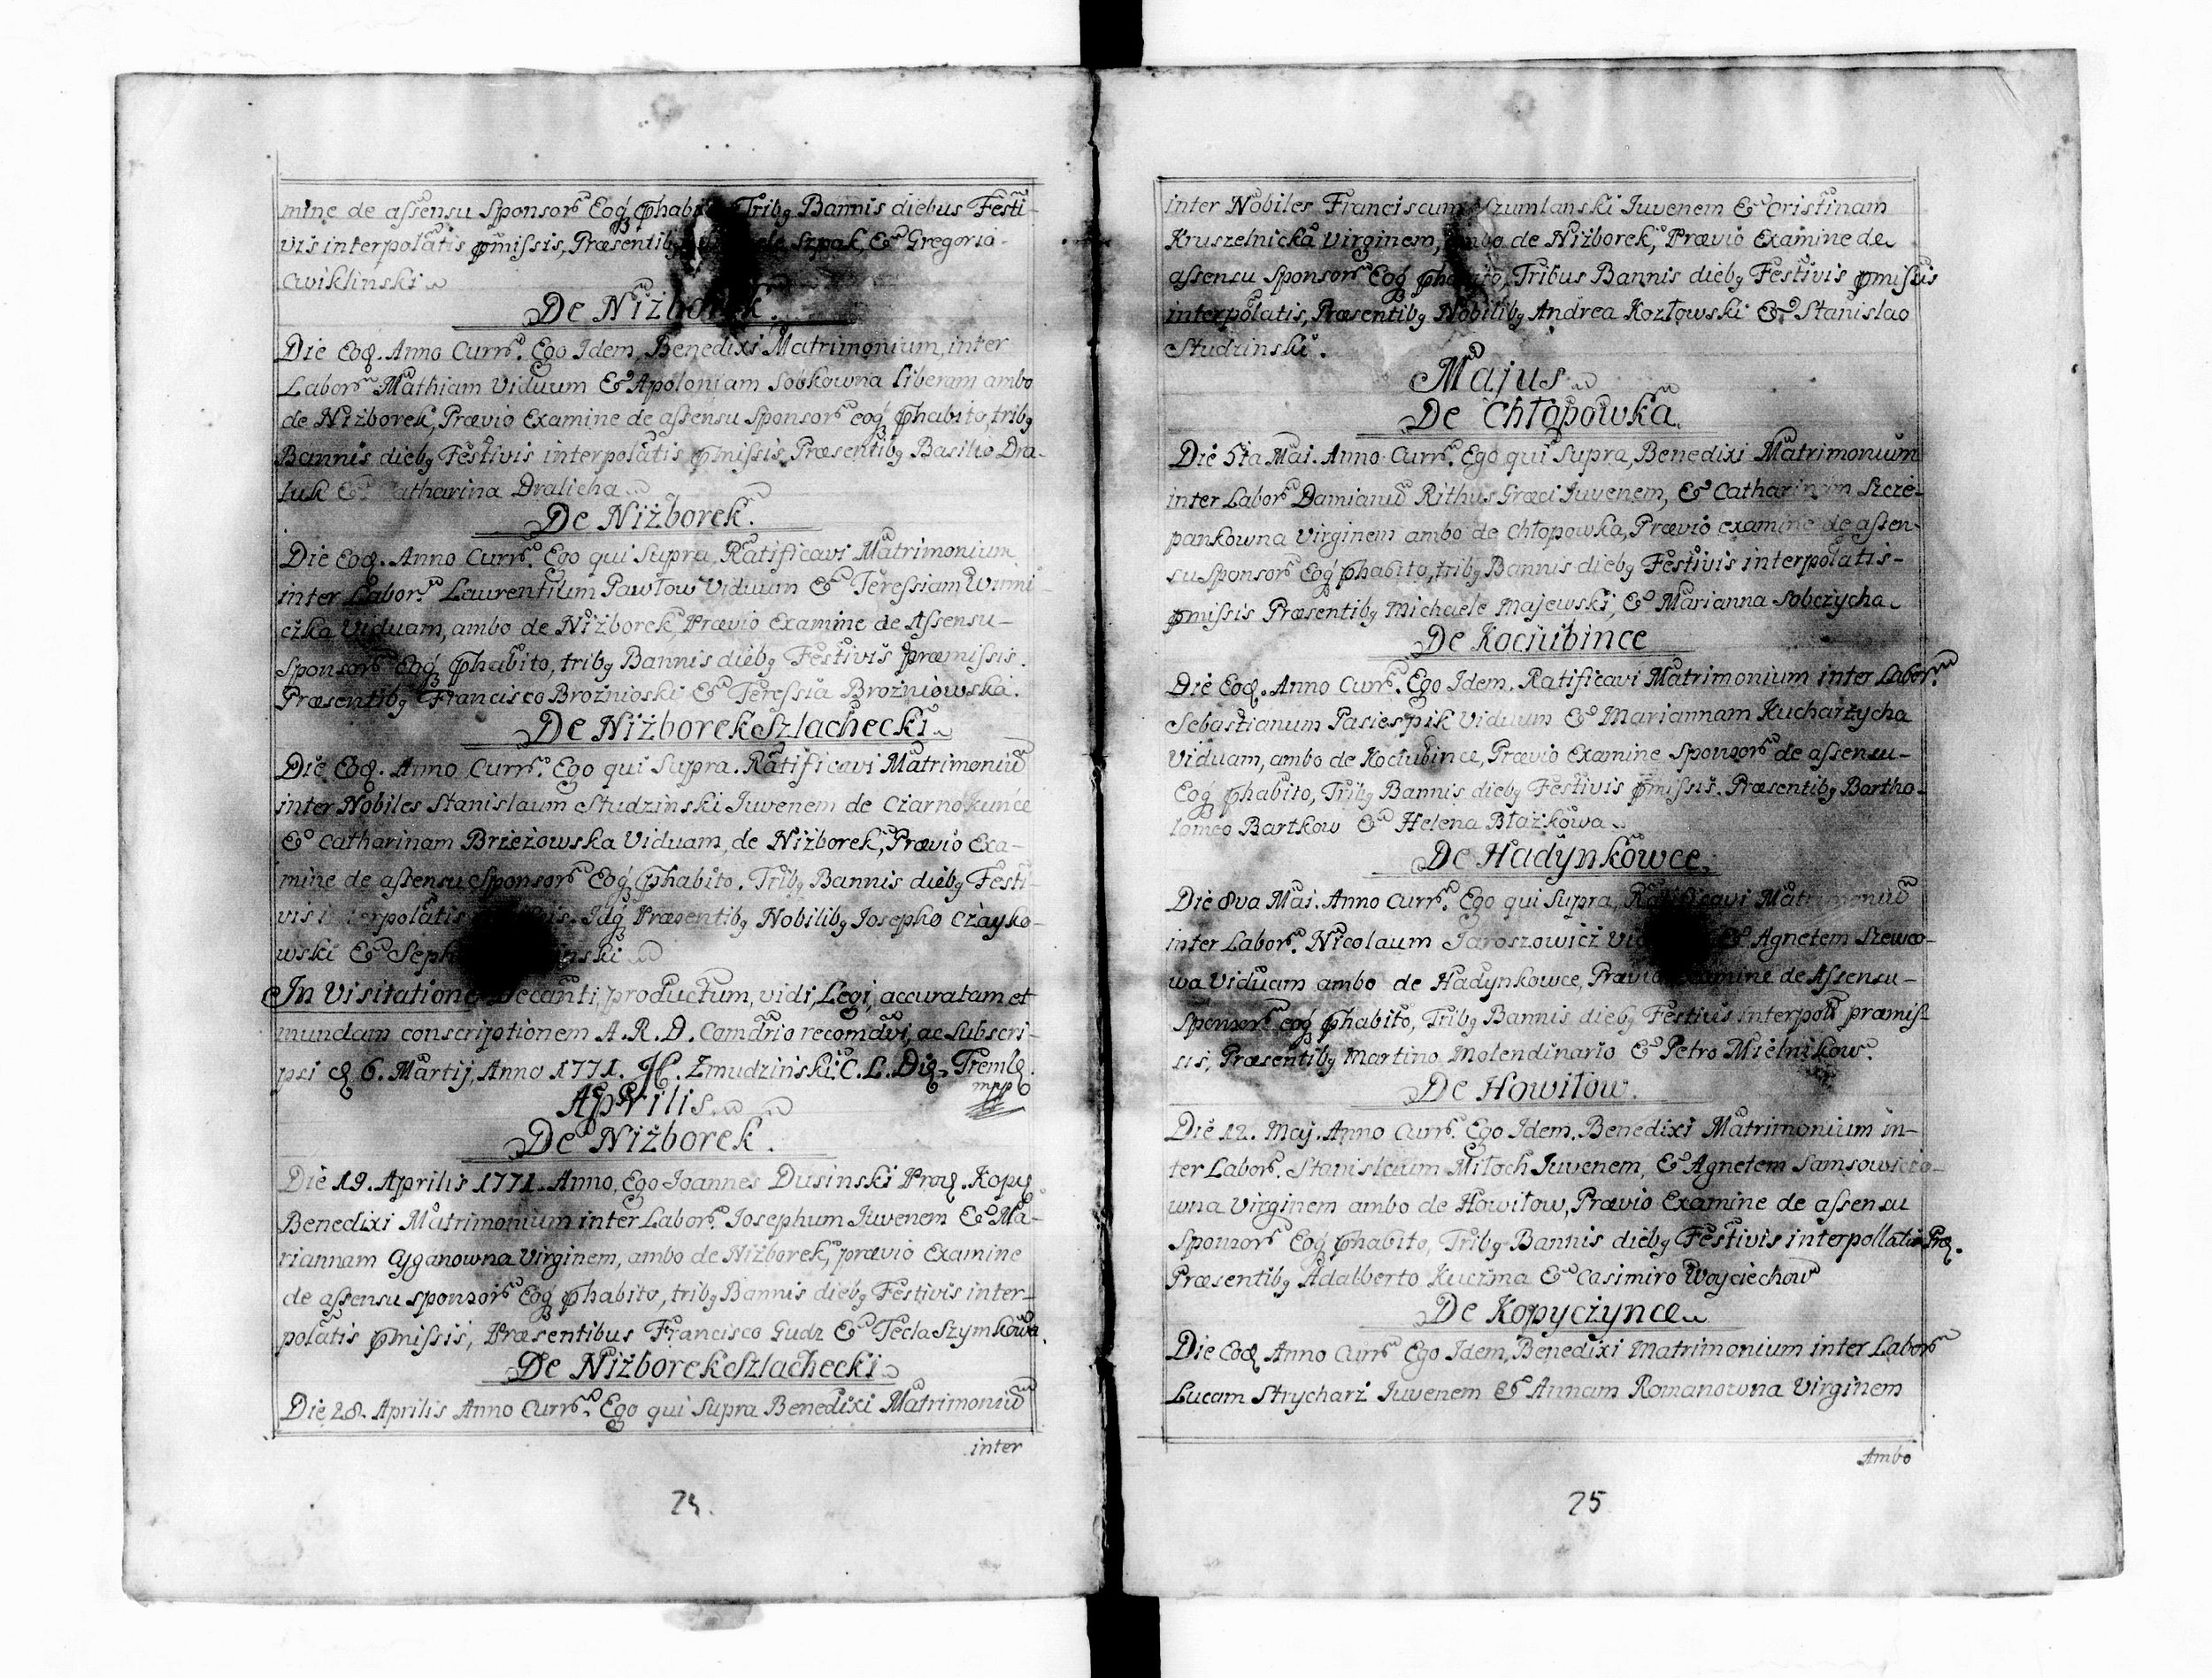 mine de assensu Sponsor Eoq phabito Tribg Bannis diebus Festi-
vis interpolatis pmissis, Præsentib Szpak, & Gregorio
Cwiklinski
De Niżborek.
Die Eod. Anno Curr. Ego Idem, Benedixi Matrimonium, inter
Labor Mathiam Viduum & Apoloniam Sobkowna liberam ambo
de Niżborek, Prævio Examine de assensu Sponsor eoq phabito, tribg
Bannis diebg Festivis interpolatis pmissis, Præsentibg Basilio Dra-
luk & Catharina Dralicha
De Niżborek.
Die Eod. Anno Curr. Ego qui Supra, Ratificavi Matrimonium
inter Labor. Laurentium Pawlow Viduum & Teressiam Winni
czka Viduam, ambo de Niżborek, Prævio Examine de Assensu-
Sponsor Eoq phabito, tribg Bannis diebg Festivis præmissis.
Præsentibg Francisco Brożnioski & Teressia Brożniowska.
De Niżborek Szlachecki
Die Eod. Anno Curr. Ego qui Supra. Ratificavi Matrimoniū
inter Nobiles Stanislaum Studzinski Juvenem de Czarnokunce
& Catharinam Brzeżowska Viduam, de Niżborek, Prævio Exa-
mine de assensu Sponsor Eoq phabito. Tribg Bannis diebg Festi-
vis interpolatis Idq Præsentibg Nobilibg Josepho Czayko-
wski &
In Visitatione Decanti, productum, vidi, Legi, accuratam et
mundam conscriptionem A. R. D. Comdrio recomdvi, ac subscri-
psi d 6. Martij, Anno 1771. H. Zmudziński C. L. Dić. Trembl.
mpp
Aprilis
De Niżborek.
Die 19. Aprilis 1771. Anno, Ego Joannes Dusinski Prod. Kopy
Benedixi Matrimonium inter Labor. Josephum Juvenem & Ma-
riannam Cyganowna Virginem, ambo de Niżborek, prævio Examine
de assensu sponsor Eoq phabito, tribg Bannis diebg Festivis inter-
polatis pmissis, Præsentibus Francisco Gudz & Tecla Szymkowa.
De Niżborek Szlachecki
Die 28. Aprilis Anno Curr. Ego qui Supra Benedixi Matrimoniū
inter
24.
inter Nobiles Franciscum Juvenem & Cristinam
Kruszelnicka Virginem, ambo de Niżborek, Prævio Examine de
assensu Sponsor Eoq phabito, Tribus Bannis diebg Festivis pmissis
interpolatis, Præsentibg Nobilibg Andrea Kozłowski & Stanislao
Studzinski.
Majus
De Chłopowka
Die 5ta Mai. Anno Curr. Ego qui Supra, Benedixi Matrimonium
inter Labor Damianū Rithus Græci Juvenem, & Catharinam Szcze-
pankowna Virginem ambo de Chłopowka, Prævio examine de assen-
su Sponsor Eoq phabito, tribg Bannis diebg Festivis interpolatis-
pmissis Præsentibg Michaele Majewski, & Marianna Sobczycha
De Kociubince
Die Eod. Anno Curr. Ego Idem. Ratificavi Matrimonium inter Labor.
Sebastianum Pasiespik Viduum & Mariannam Kucharżycha
Viduam, ambo de Kociubince, Prævio Examine Sponsor de assensu-
Eoq phabito, Tribg Bannis diebg Festivis pmissis. Præsentibg Bartho-
lomeo Bartkow & Helena Błażkowa
De Hadynkowce
Die 8va Mai. Anno Curr. Ego qui Supra, Ratificavi Matrimoniū
inter Labor. Nicolaum Jaroszowicz & Agnetem Szewco-
wa Viduam ambo de Hadynkowce, Prævio Examine de Assensu-
Sponsor eoq phabito, Tribg Bannis diebg Festivis interpolt præmis-
sis, Præsentibg Martino Molendinario & Petro Mielnikow.
De Howiłow.
Die 12. Maj. Anno Curr. Ego Idem. Benedixi Matrimonium in-
ter Labor. Stanislaum Miłoch Juvenem, & Agnetem Samsowiczo-
wna Virginem ambo de Howiłow, Prævio Examine de assensu
Sponsor Eoq phabito, Tribg Bannis diebg Festivis interpollatis Præ.
Præsentibg Adalberto Kuczma & Casimiro Woyciechow
De Kopyczynce
Die Eod Anno Curr Ego Idem, Benedixi Matrimonium inter Labor
Lucam Strycharż Juvenem & Annam Romanowna Virginem
Ambo
25